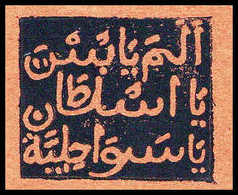 اَلَمَ يَا بُسْتَ ١١
يَا اسُلْطَان
يَا سَوَاحِلِيَّة